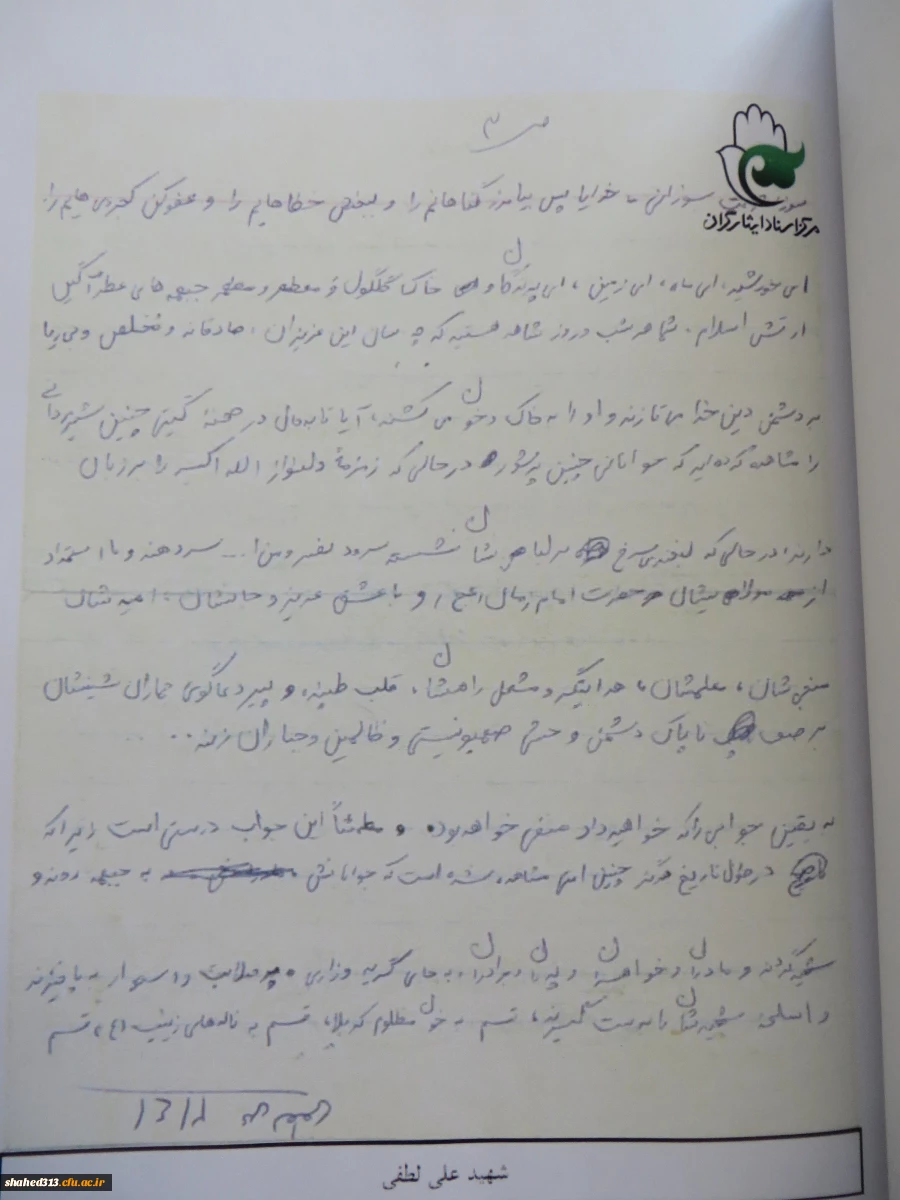 ص ۳
مرکز اسناد ایثارگران
سوزانی، خدایا پس بیامرز گناهانم را و ببخش خطاهایم را و عفو کن کجروی هایم را
ای خورشید، ای ماه، ای زمین، ای پرندگان و خاک گلگون و معطر و مطهر جبهه های عطرآگین
ارتش اسلام. شما هر شب و روز شاهد هستید که چه سان این عزیزان، صادقانه و مخلص و بی ریا
به دشمن دین خدا می تازند و او را به خاک و خون می کشند، آیا تا بحال در صحنه گیتی چنین شیرمردانی
را مشاهده کرده اید که جوانانی چنین پرشور در حالی که زمزمهٔ دلنواز الله اکبر را بر زبان
دارند، در حالی که لبخندی سرخ بر لبانشان نشسته سرود سر دهند و با استمداد
از حضرت امام زمان (عج) و با عشق عزیز و جانشان، امیدشان
معلمشان، هدایتگر و مشعل راهشان، قلب طپنده و پیر دعاگوی جماران نشینشان
بر صف ناپاک دشمن و صهیونیستی و ظالمین و جباران بزنند...
به یقین جوابی را که خواهید داد منفی خواهد بود و مطمئناً این جواب درستی است زیرا که
در طول تاریخ هرگز چنین امتی مشاهده نشده است که جوانانش به جبهه روند و
شهید گردند و مادران و خواهران و پدران و برادران به جای گریه و زاری، پر صلابت و استوار به پا خیزند
و اسلحه شهیدشان را بدست گیرند، قسم به خون مظلوم کربلا، قسم به ناله های زینب (ع)، قسم
شهید علی لطفی
shahed313.cfu.ac.ir